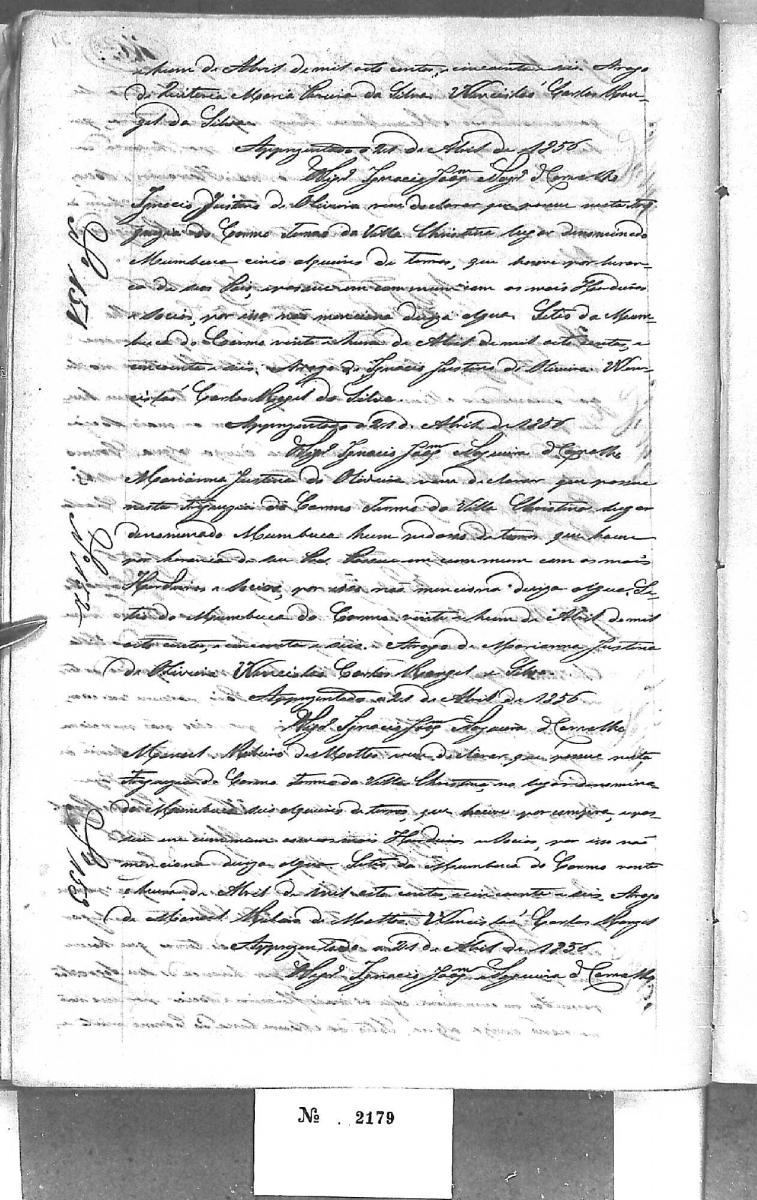 e hum de Abril de mil oito centos, e cincoenta e seis Arogo
de Quiteria Maria Pereira da Silva. Wencisláo Carlos Ran-
gel da Silva
Appresentado a 21 de Abril de 1856
Vigr.º Ignacio Joaqm Nogrª d Carvalho
Nº 151
Ignacio Justino de Oliveira vem declarar que possue nesta Fre-
guezia do Carmo Termo da Villa Christina lugar denominado
Mumbuca cinco alqueires de terras, que houve por heran-
ca de seus Pais, e possue em commum com os mais Herdeiros
e Socios, por isso não menciona diviza algua. Sitio da Mum-
buca do Carmo vinte e hum de Abril de mil oito centos, e
cincoenta e seis. Arogo de Ignacio Justino de Oliveira Wen-
cisláo Carlos Rangel da Silva.
Appresentado a 21 d. Abril de 1856
Vigr.º Ignacio Joaqm Nogueira d Carvalho
Nº 152
Marianna Justina de Oliveira vem declarar que possue
nesta Freguezia do Carmo Termo da Villa Christina lugar
denominado Mumbuca hum de terras que houve
por herança de seu Pai. Possue em commum com os mais
Herdeiros e Socios, por isso não menciona diviza algua. Si-
tio da Mumbuca do Carmo vinte e hum de Abril de mil
oito centos, e cincoenta e seis. Arogo de Marianna Justina
de Oliveira Wencisláo Carlos Rangel e Silva.
Appresentado a 21 de Abril de 1856
Vigr.º Ignacio Joaqm Nogueira d Carvalho
Nº 153
Manoel Ribeiro de Mattos vem declarar que possue nesta
Freguezia do Carmo Termo da Villa Christina, no lugar denomina-
do Mumbuca seis alqueires de terras, que houve por compra, e pos-
sue em commum com os mais Herdeiros e Socios, por isso não
menciona diviza algua Sitio da Mumbuca do Carmo vinte
e hum de Abril de mil oito centos, e cincoente e seis, Arogo
de Manoel Ribeiro de Mattos. Wencisláo Carlos Rangel
Appresentado a 21 de Abril de 1856
Vigr.º Ignacio Joaqm Nogueira d Carvalho
№ 2179